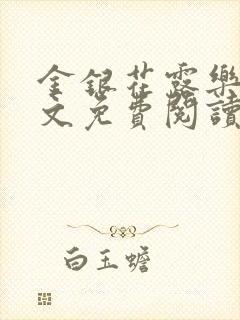 金銀花露樂
文免費閱讀
白玉蟾